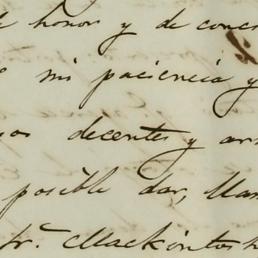 de honor y de conc
mi paciencia y
sos decentes y arr
posible dar, Man
Sr. Mackintosh